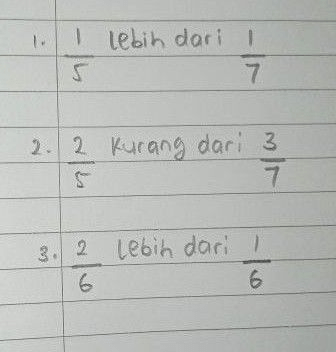 1. 1/5 lebih dari 1/7
2. 2/5 Kurang dari 3/7
3. 2/6 lebih dari 1/6